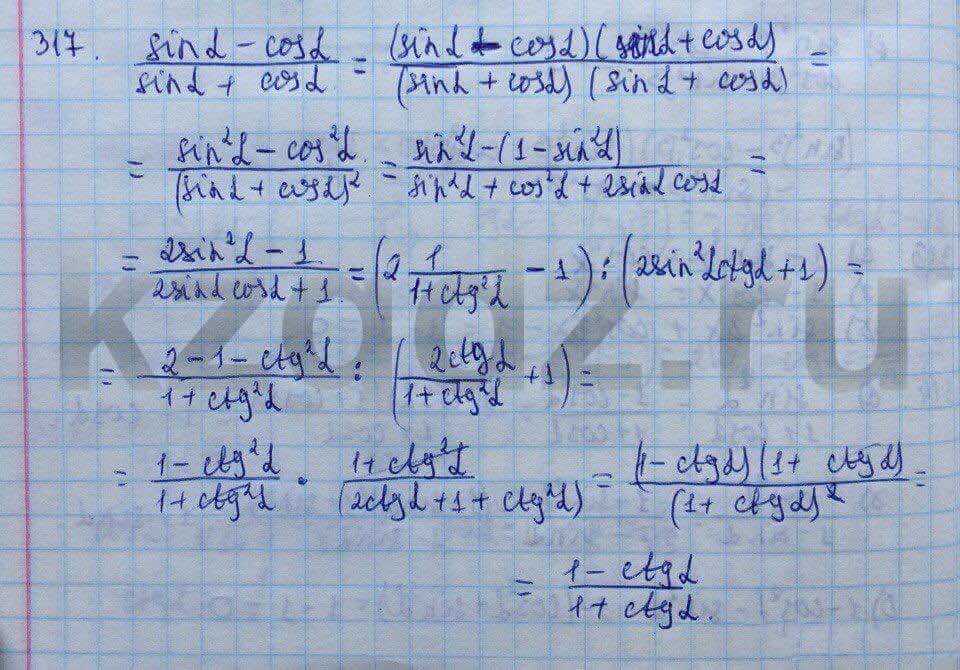 317. (sinα - cosα)/(sinα + cosα) = ((sinα - cosα)(sinα + cosα))/((sinα + cosα)(sinα + cosα)) =
= (sin²α - cos²α)/(sinα + cosα)² = (sin²α - (1 - sin²α))/(sin²α + cos²α + 2sinα cosα) =
= (2sin²α - 1)/(2sinα cosα + 1) = (2 1/(1 + ctg²α) - 1) : (2sin²α ctgα + 1) =
= (2 - 1 - ctg²α)/(1 + ctg²α) : (2ctgα/(1 + ctg²α) + 1) =
= (1 - ctg²α)/(1 + ctg²α) · (1 + ctg²α)/(2ctgα + 1 + ctg²α) = ((1 - ctgα)(1 + ctgα))/(1 + ctgα)² =
= (1 - ctgα)/(1 + ctgα).
kzgdz.ru